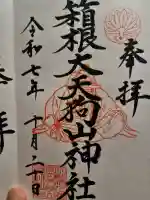 奉拝
箱根大天狗山神社
令和七年十月二十日